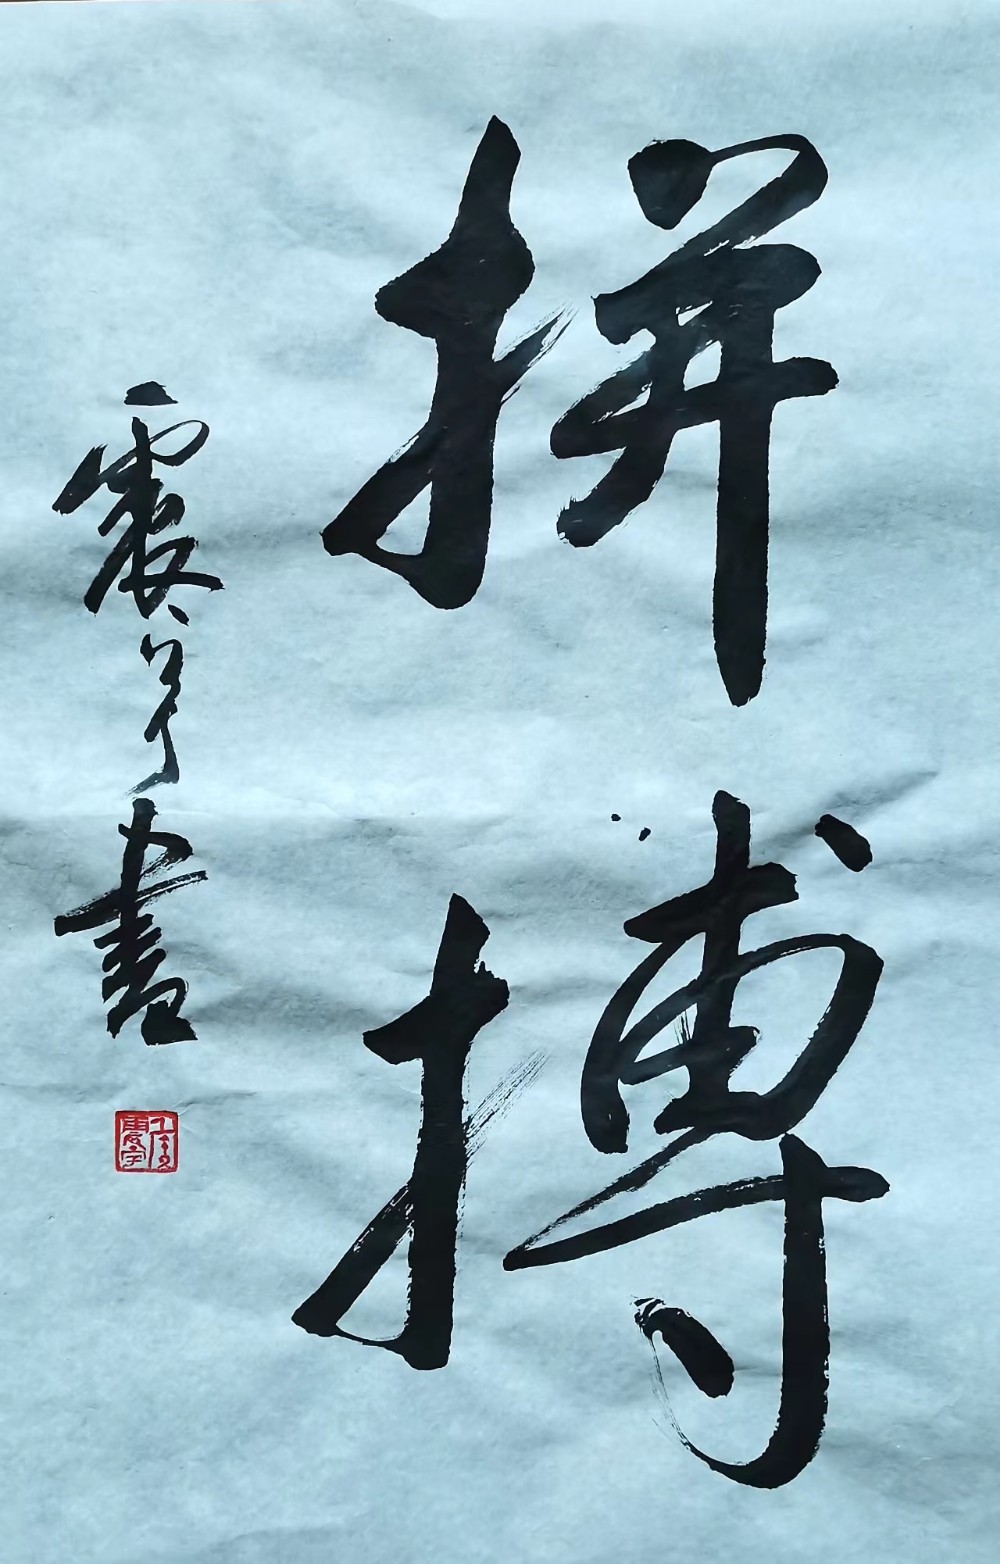 拼搏
震宇書